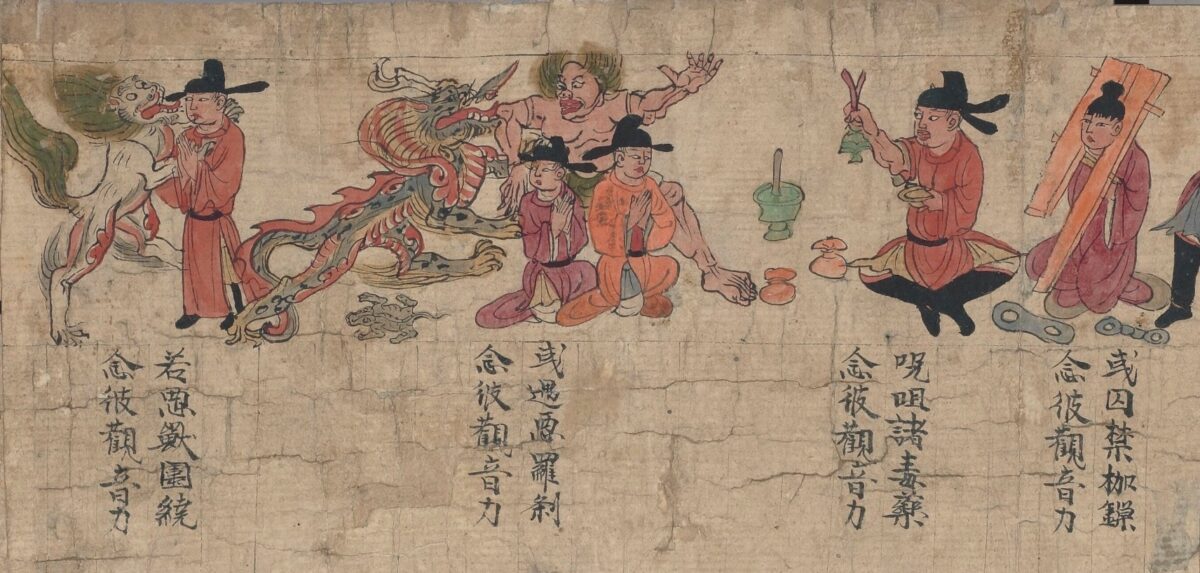 或囚禁枷鏁
念彼觀音力
呪咀諸毒藥
念彼觀音力
或遇惡羅剎
念彼觀音力
若惡獸圍繞
念彼觀音力